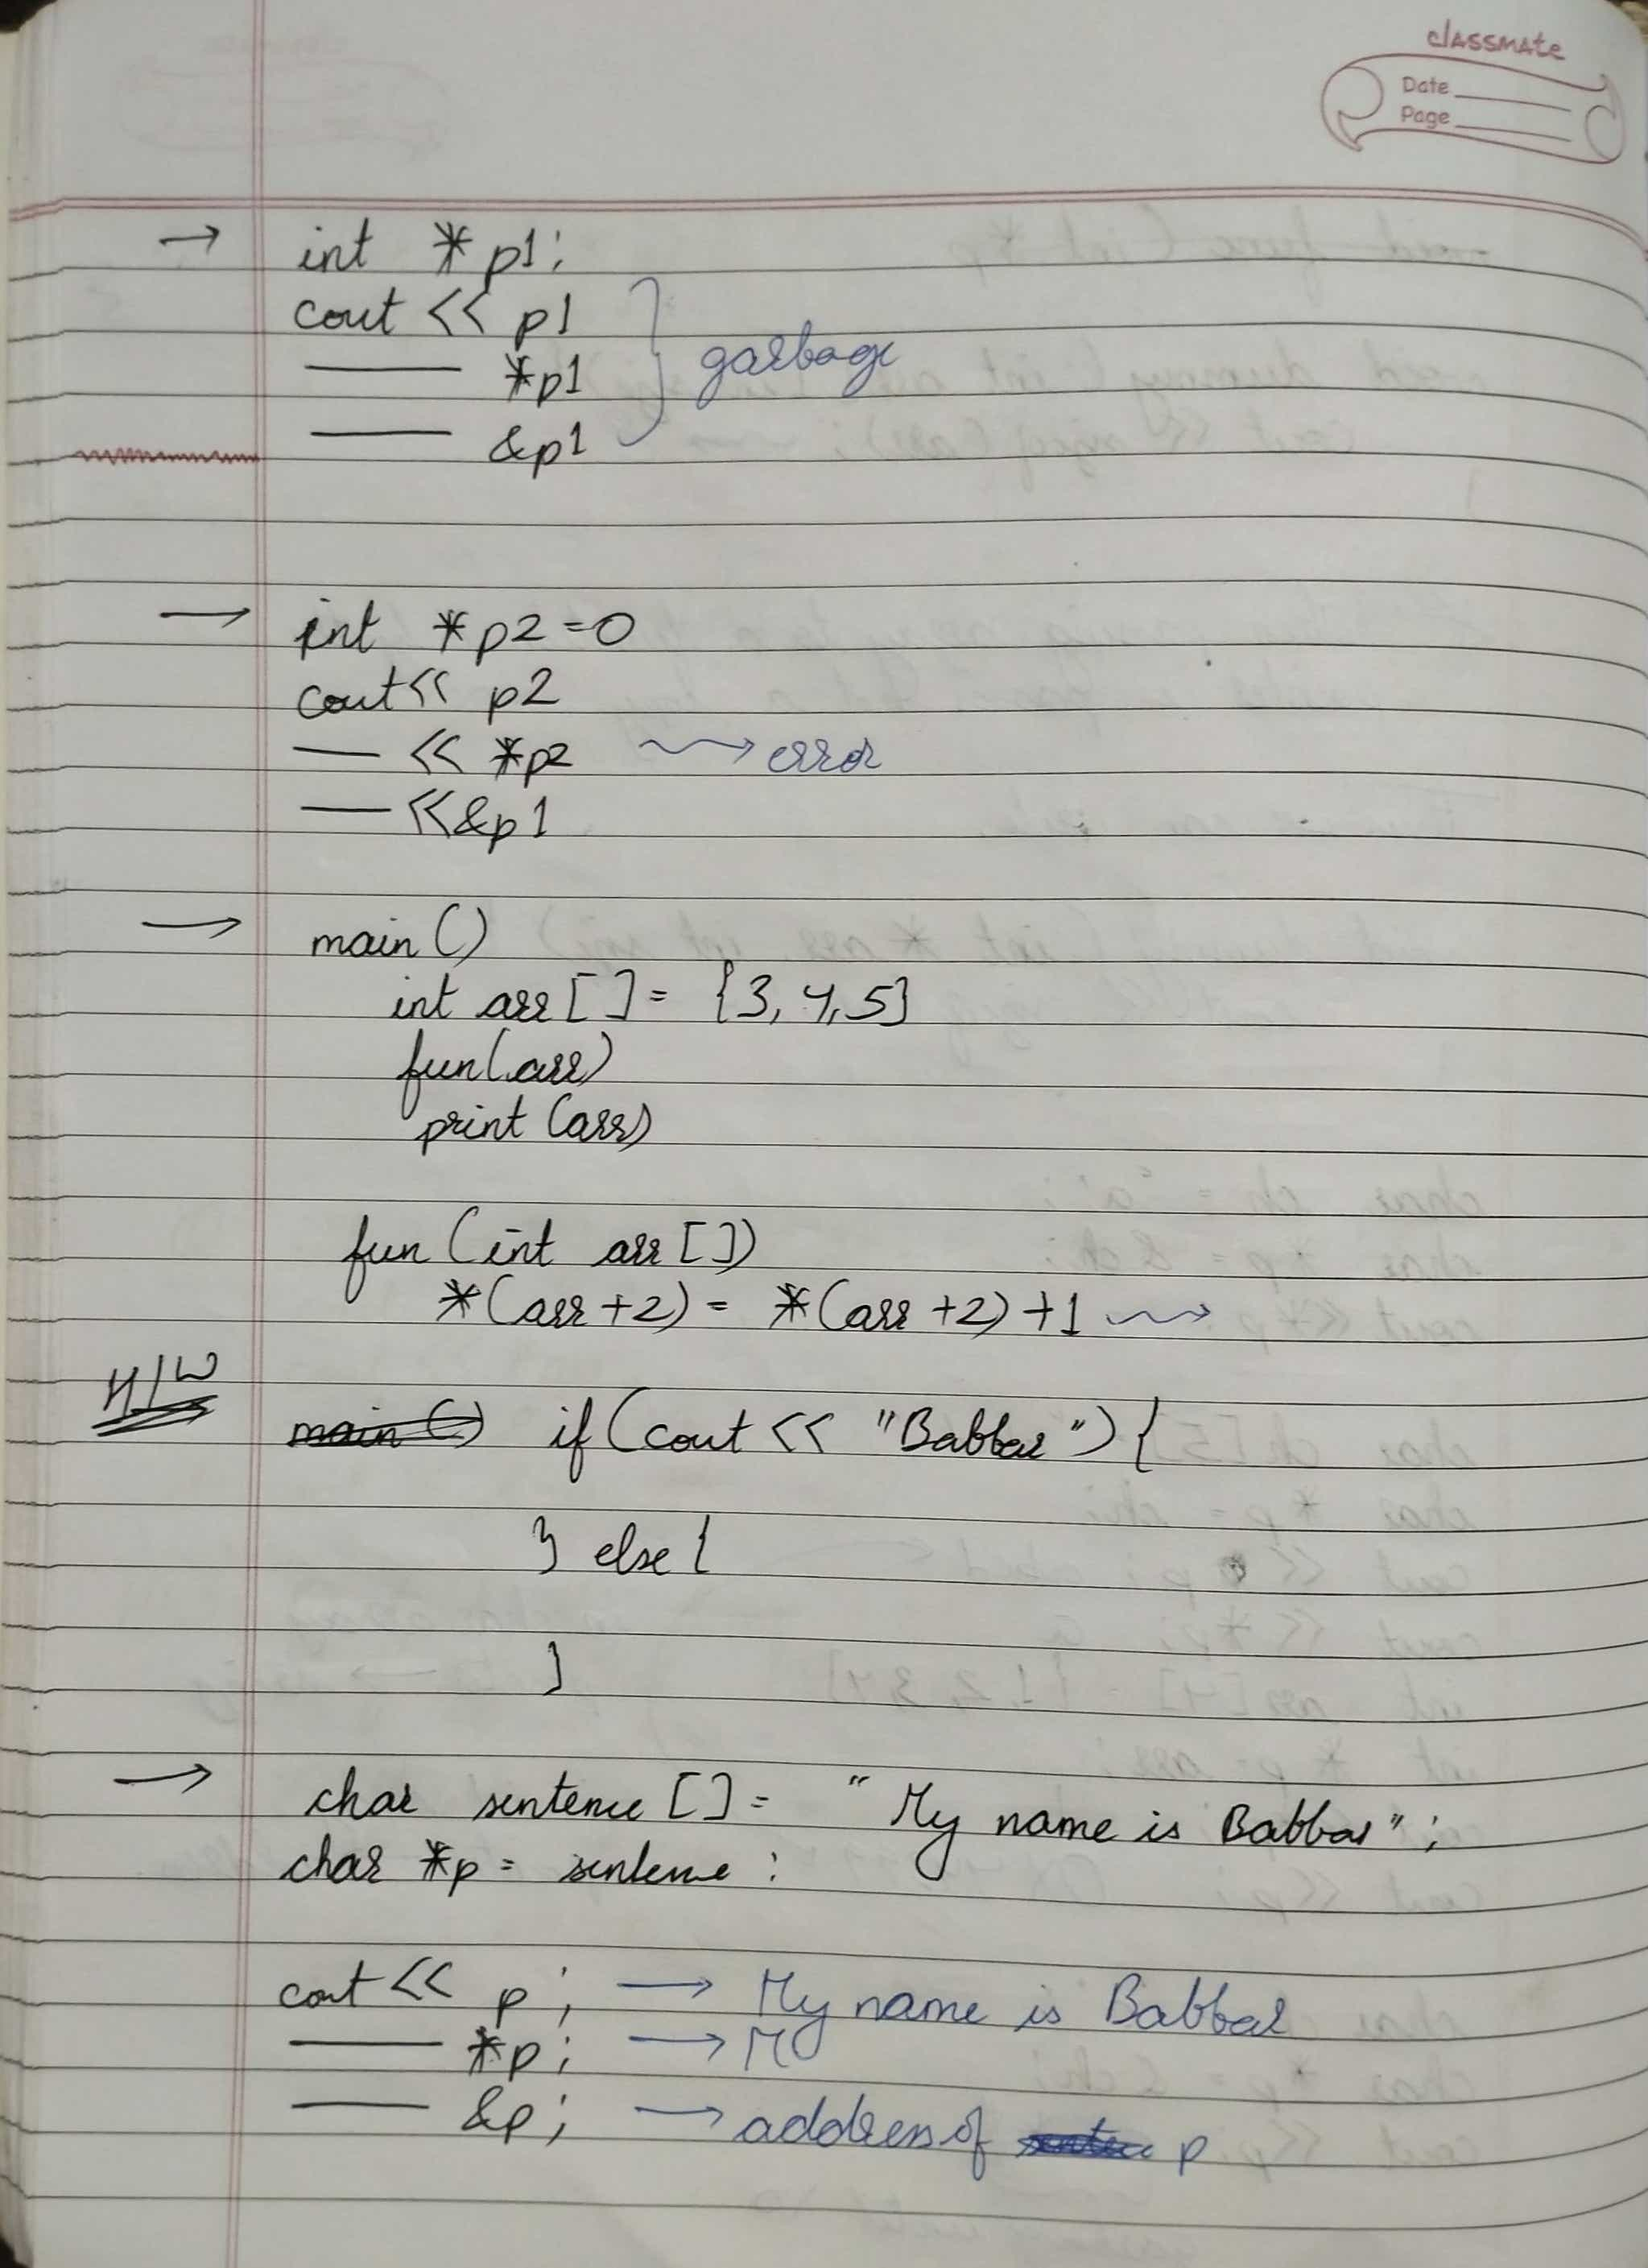 classmate
Date
Page
→ int *p1;
cout << p1
—— *p1 } garbage
—— &p1
→ int *p2=0
cout<< p2
— << *p2 ⇝ error
— <<&p1
→ main()
int arr[]= {3,4,5}
fun(arr)
print(arr)
fun(int arr[])
*(arr+2)= *(arr+2)+1 ⇝
H/W
main() if(cout << "Babbar"){
} else {
}
→ char sentence []= "My name is Babbar";
char *p= sentence:
cout << p; → My name is Babbar
—— *p; → M
—— &p; → address of p